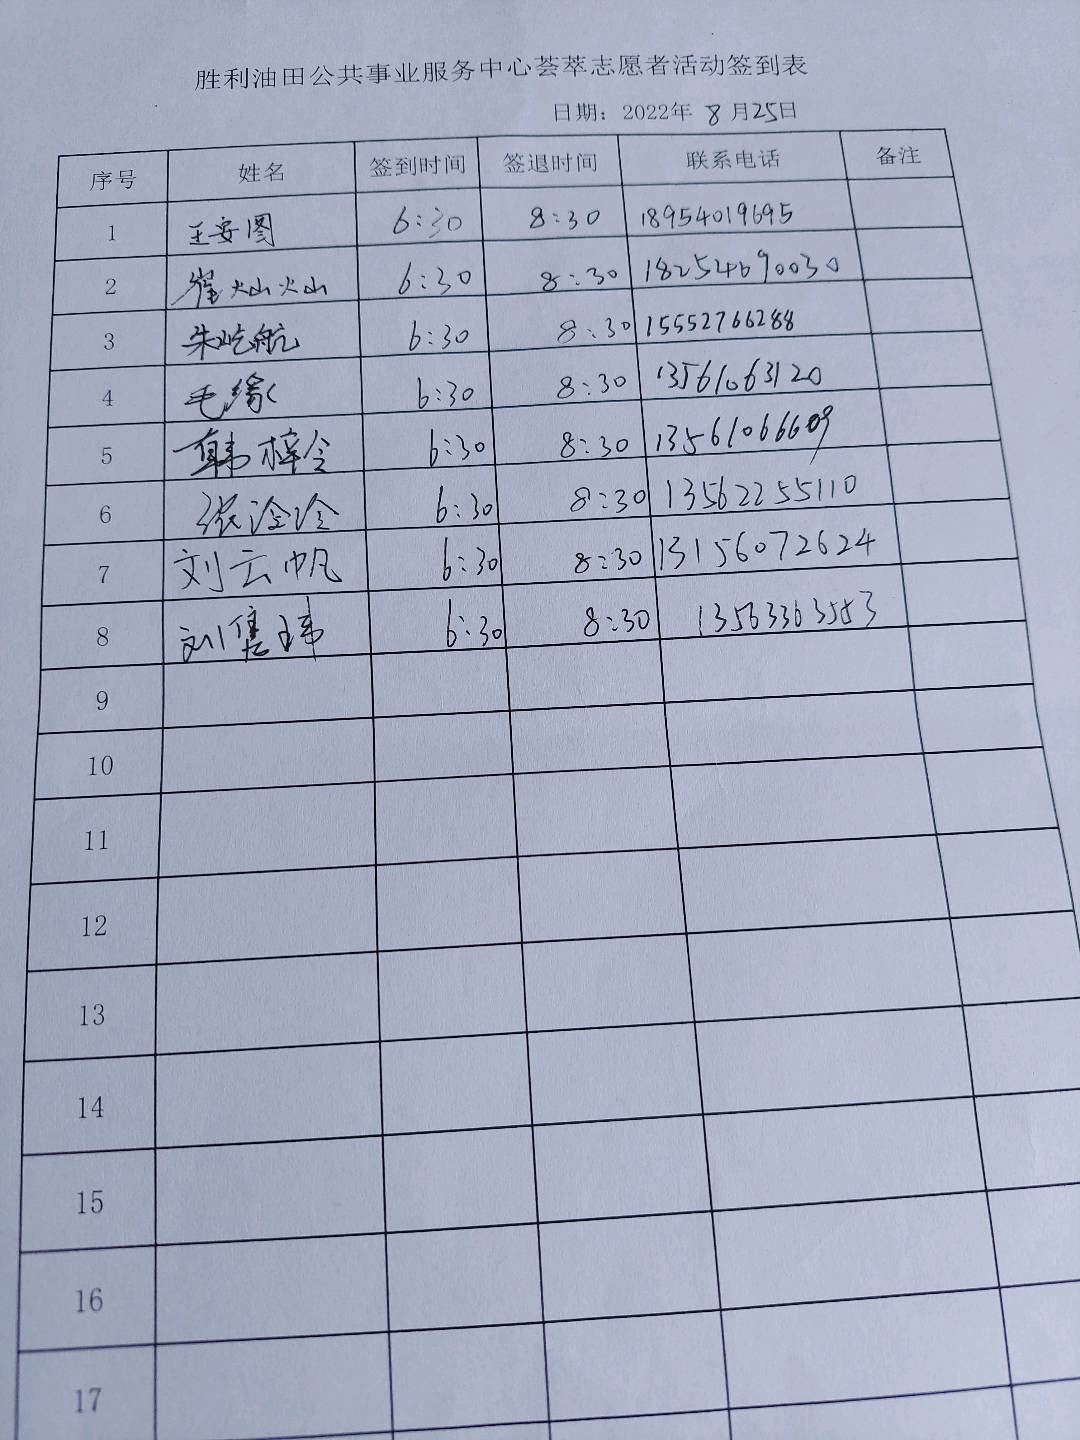 胜利油田公共事业服务中心荟萃志愿者活动签到表
日期：2022年 8 月25日
序号 姓名 签到时间 签退时间 联系电话 备注
1 王安图 6:30 8:30 18954019695
2 崔灿灿 6:30 8:30 18254690030
3 朱屹航 6:30 8:30 15552766288
4 毛缘 6:30 8:30 13561063120
5 韩梓含 6:30 8:30 13561066609
6 张泠泠 6:30 8:30 13562255110
7 刘云帆 6:30 8:30 13156072624
8 刘隽玮 6:30 8:30 13563363553
9
10
11
12
13
14
15
16
17